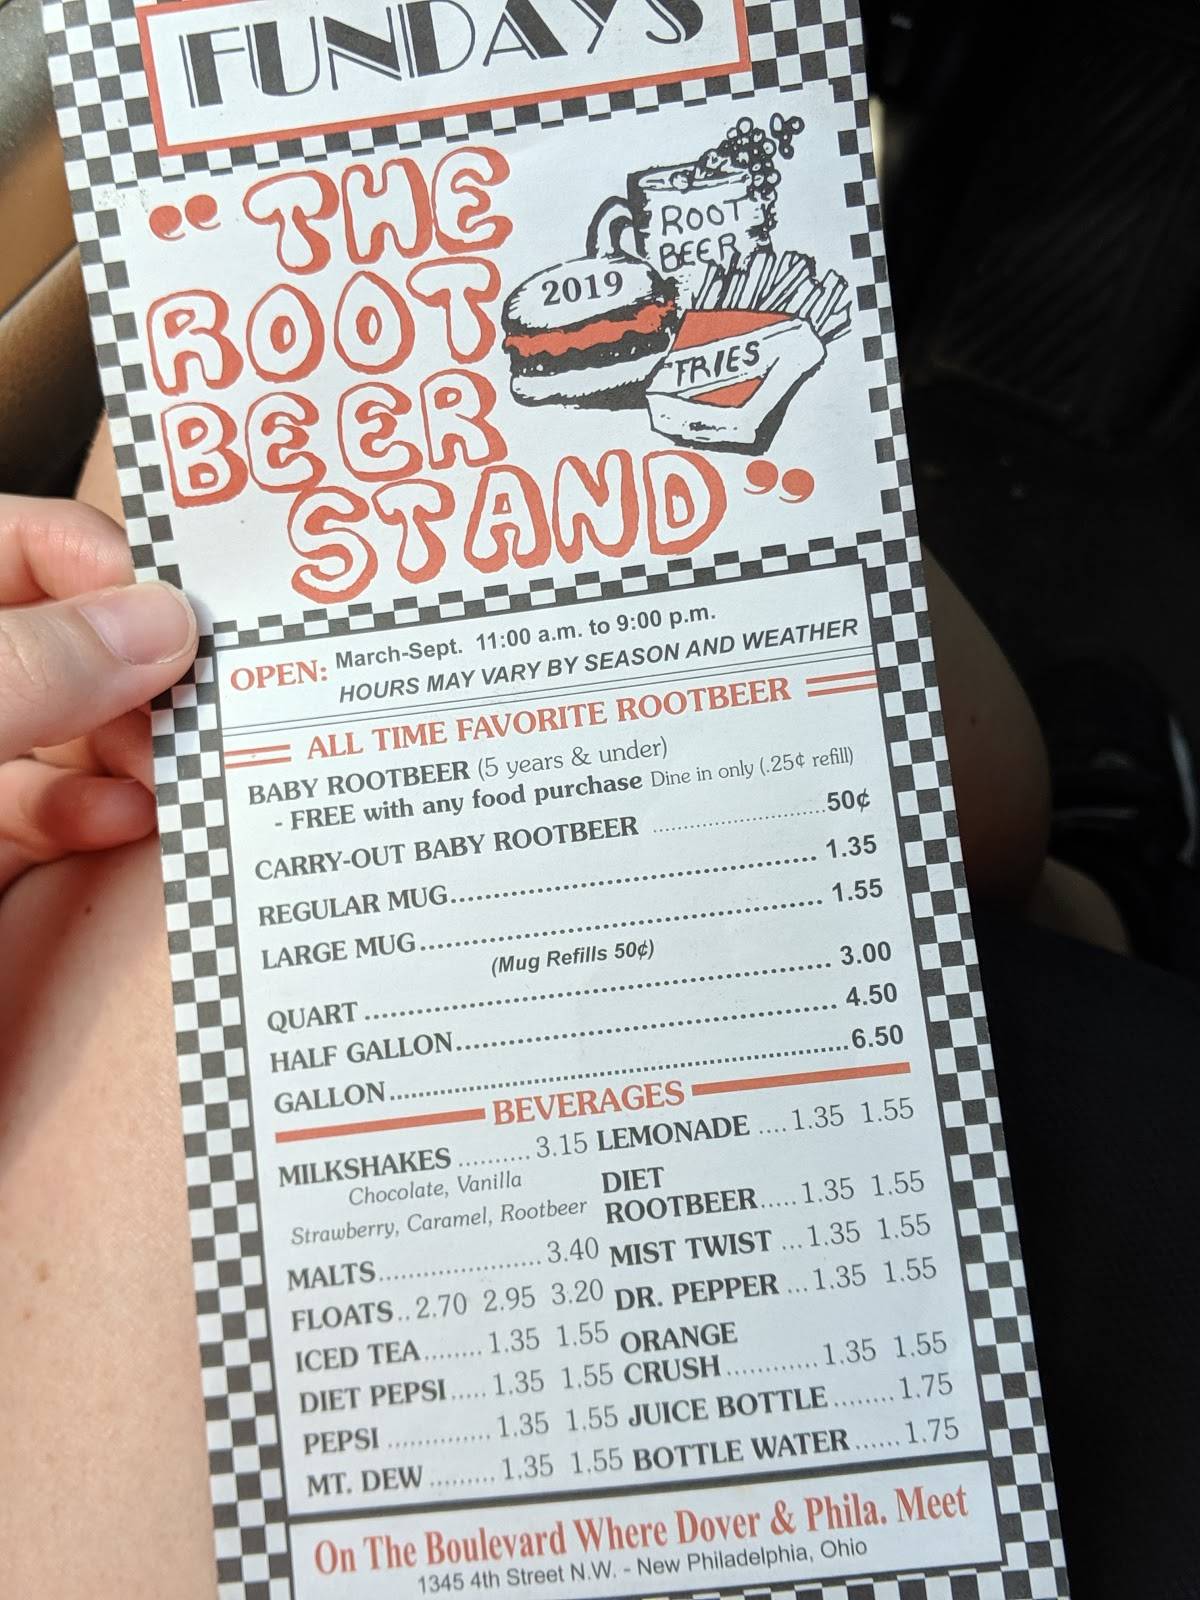 FUNDAYS
"THE
ROOT
BEER
STAND"
ROOT
BEER
2019
FRIES
OPEN: March-Sept. 11:00 a.m. to 9:00 p.m.
HOURS MAY VARY BY SEASON AND WEATHER
ALL TIME FAVORITE ROOTBEER
BABY ROOTBEER (5 years & under)
- FREE with any food purchase Dine in only (.25¢ refill)
CARRY-OUT BABY ROOTBEER ........................ 50¢
REGULAR MUG........................ 1.35
LARGE MUG........................ 1.55
(Mug Refills 50¢)
QUART ........................ 3.00
HALF GALLON........................ 4.50
GALLON........................ 6.50
BEVERAGES
MILKSHAKES .......... 3.15
Chocolate, Vanilla
Strawberry, Caramel, Rootbeer
MALTS...................... 3.40
FLOATS.. 2.70 2.95 3.20
ICED TEA........ 1.35 1.55
DIET PEPSI..... 1.35 1.55
PEPSI .............. 1.35 1.55
MT. DEW ......... 1.35 1.55
LEMONADE .... 1.35 1.55
DIET
ROOTBEER..... 1.35 1.55
MIST TWIST ... 1.35 1.55
DR. PEPPER ... 1.35 1.55
ORANGE
CRUSH............ 1.35 1.55
JUICE BOTTLE........ 1.75
BOTTLE WATER...... 1.75
On The Boulevard Where Dover & Phila. Meet
1345 4th Street N.W. - New Philadelphia, Ohio